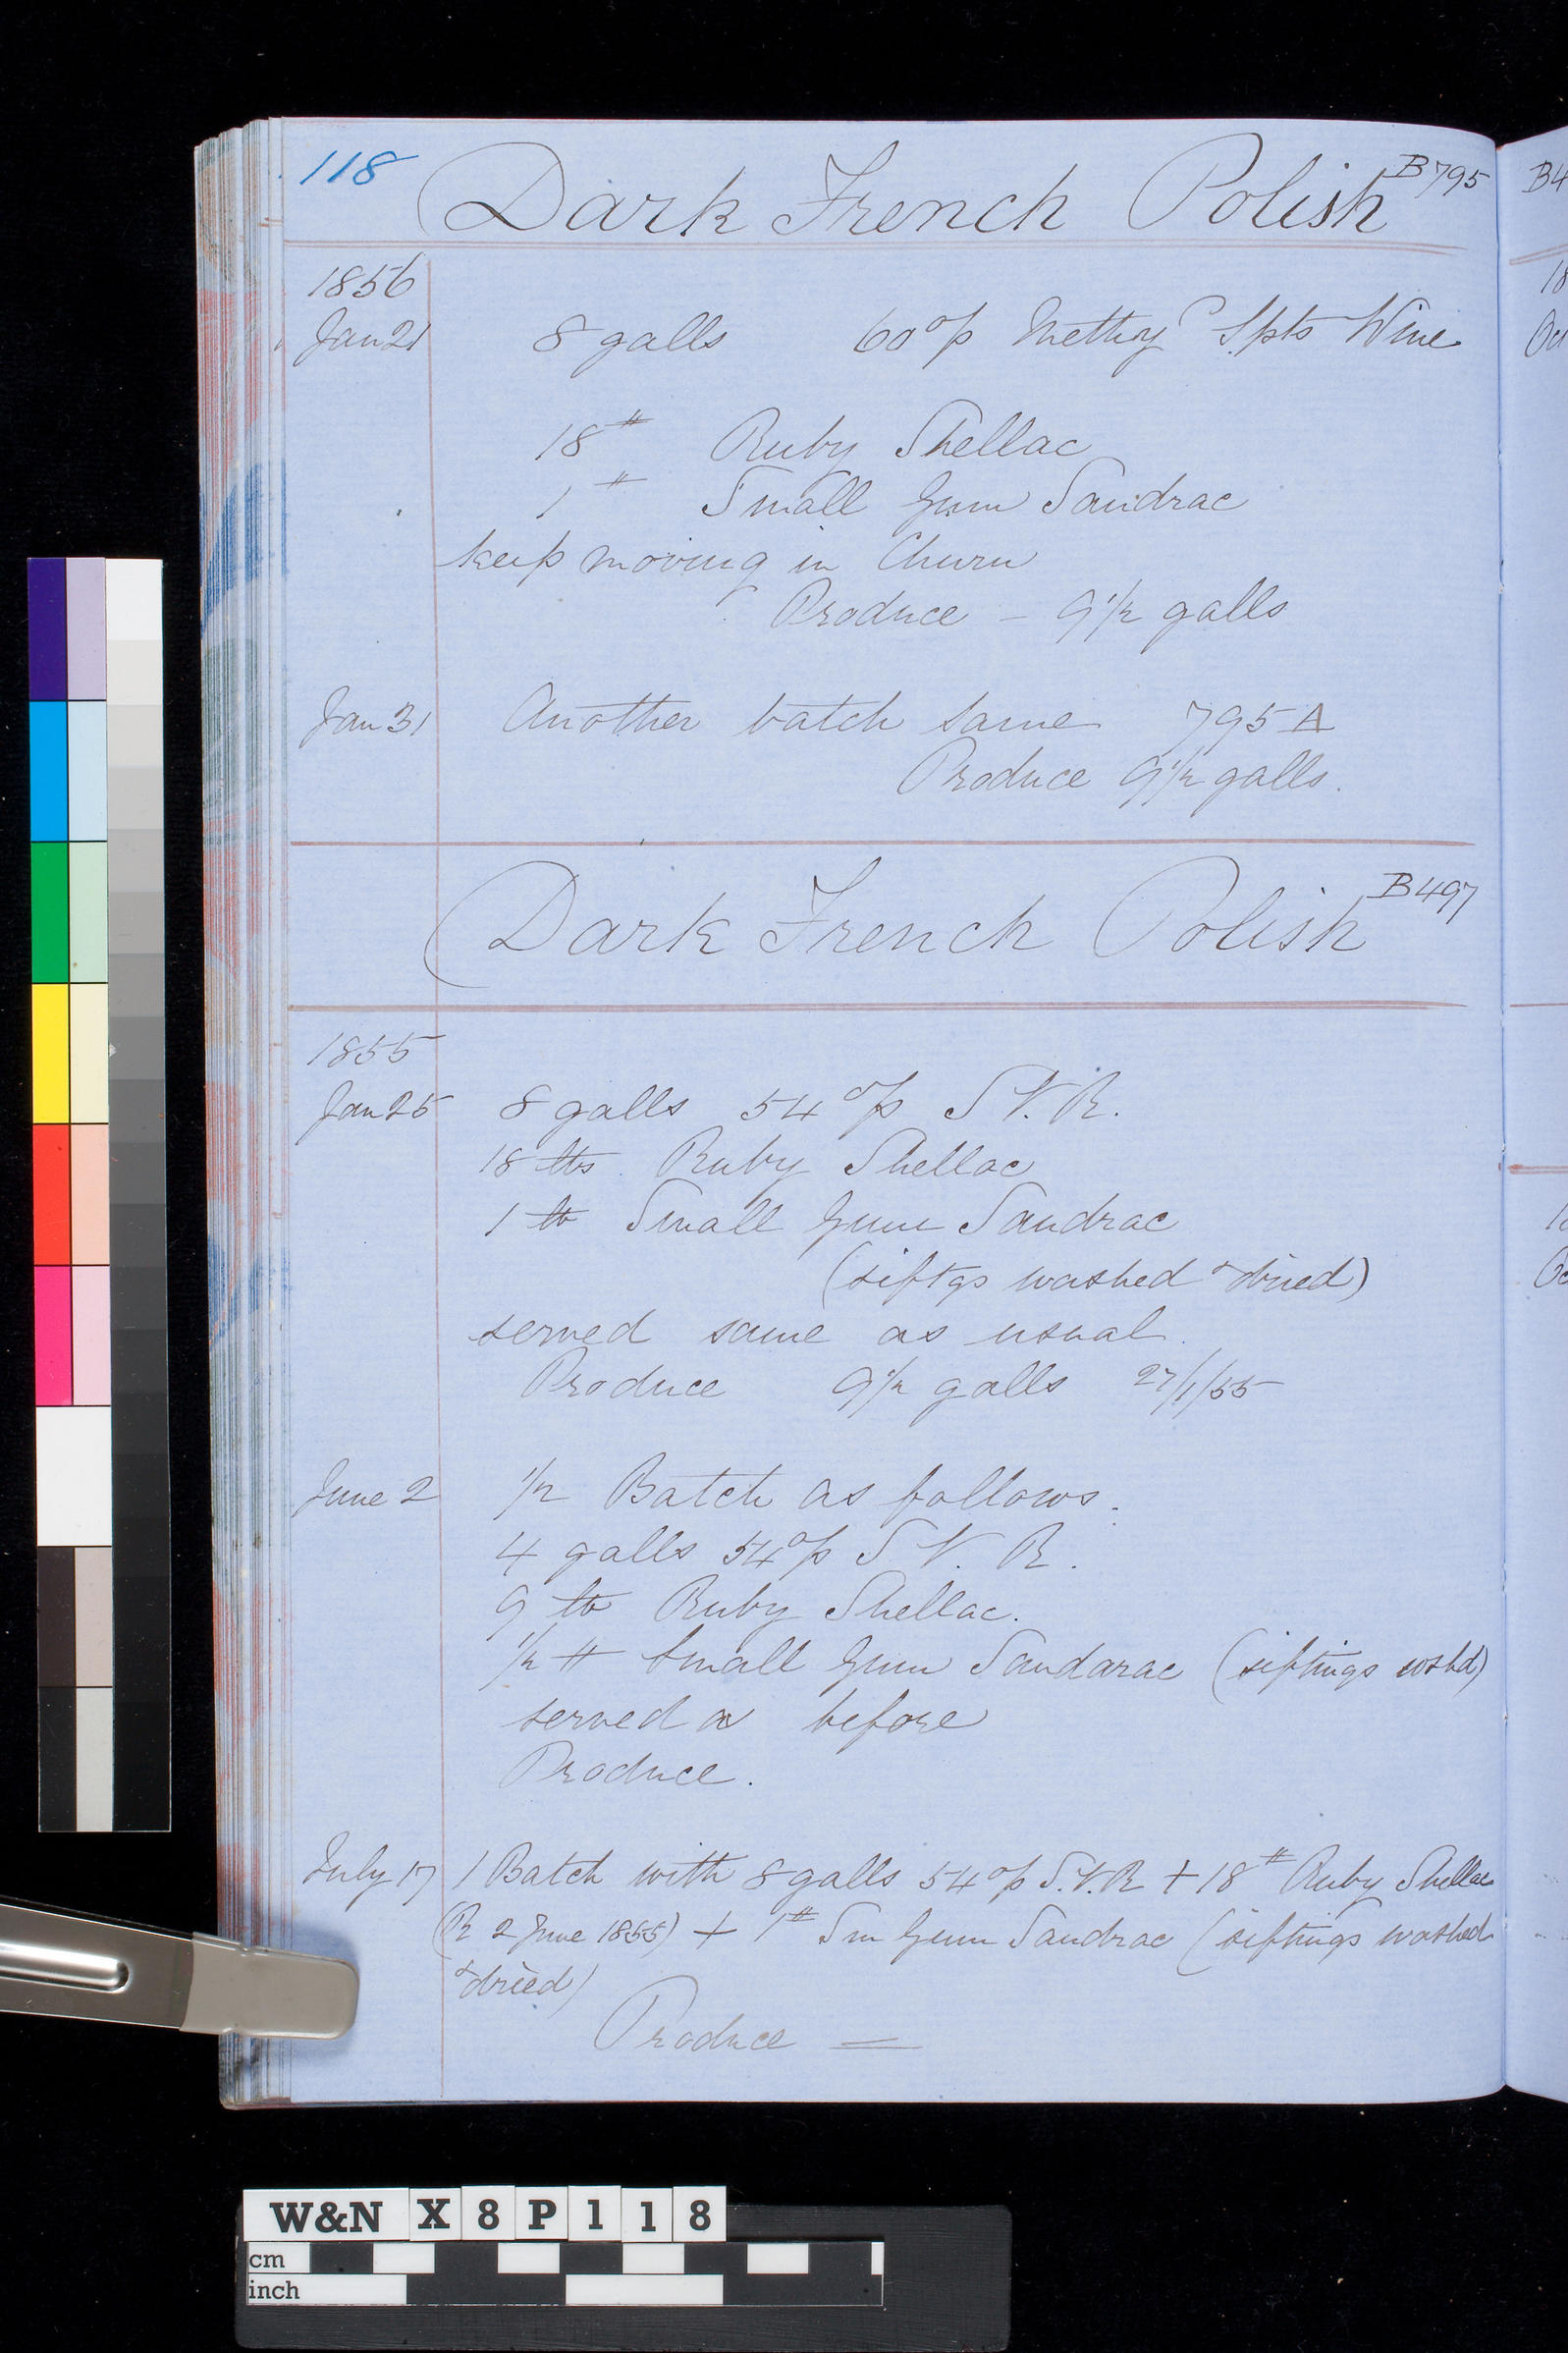 118
Dark French Polish B795
1856
Jan 21 8 galls 60 o/p Spts Wine
18# Ruby Shellac
1# Small Gum Sandrac
keep moving in Churn
Produce - 9 1/2 galls
Jan 31 Another batch same 795 A
Produce 9 1/2 galls.
Dark French Polish B497
1855
Jan 25 8 galls 54 o/p S.V.R.
18 lbs Ruby Shellac
1 lb Small Gum Sandrac
(siftgs washed & dried)
served same as usual.
Produce 9 1/2 galls 27/1/55
June 2 1/2 Batch as follows.
4 galls 54 o/p S V. R.
9 lb Ruby Shellac.
1/2 # Small Gum Sandarac (siftings wshd)
served as before
Produce.
July 17 1 Batch with 8 galls 54 o/p S.V.R + 18# Ruby Shellac
(R 2 June 1855) + 1# Sm Gum Sandrac (siftings washed
& dried)
Produce =
B4
18
Oct
W&N X8P118
cm
inch